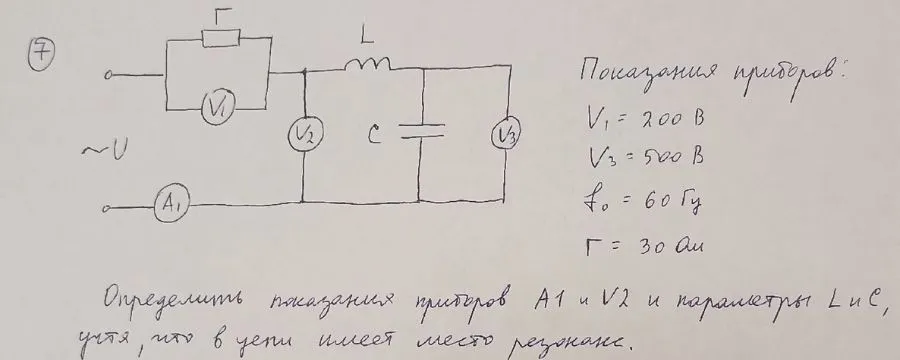 7
r
L
V1
V2
C
V3
~U
A1
Показания приборов:
V1 = 200 В
V3 = 500 В
f0 = 60 Гц
r = 30 Ом
Определить показания приборов А1 и V2 и параметры L и C,
учтя, что в цепи имеет место резонанс.